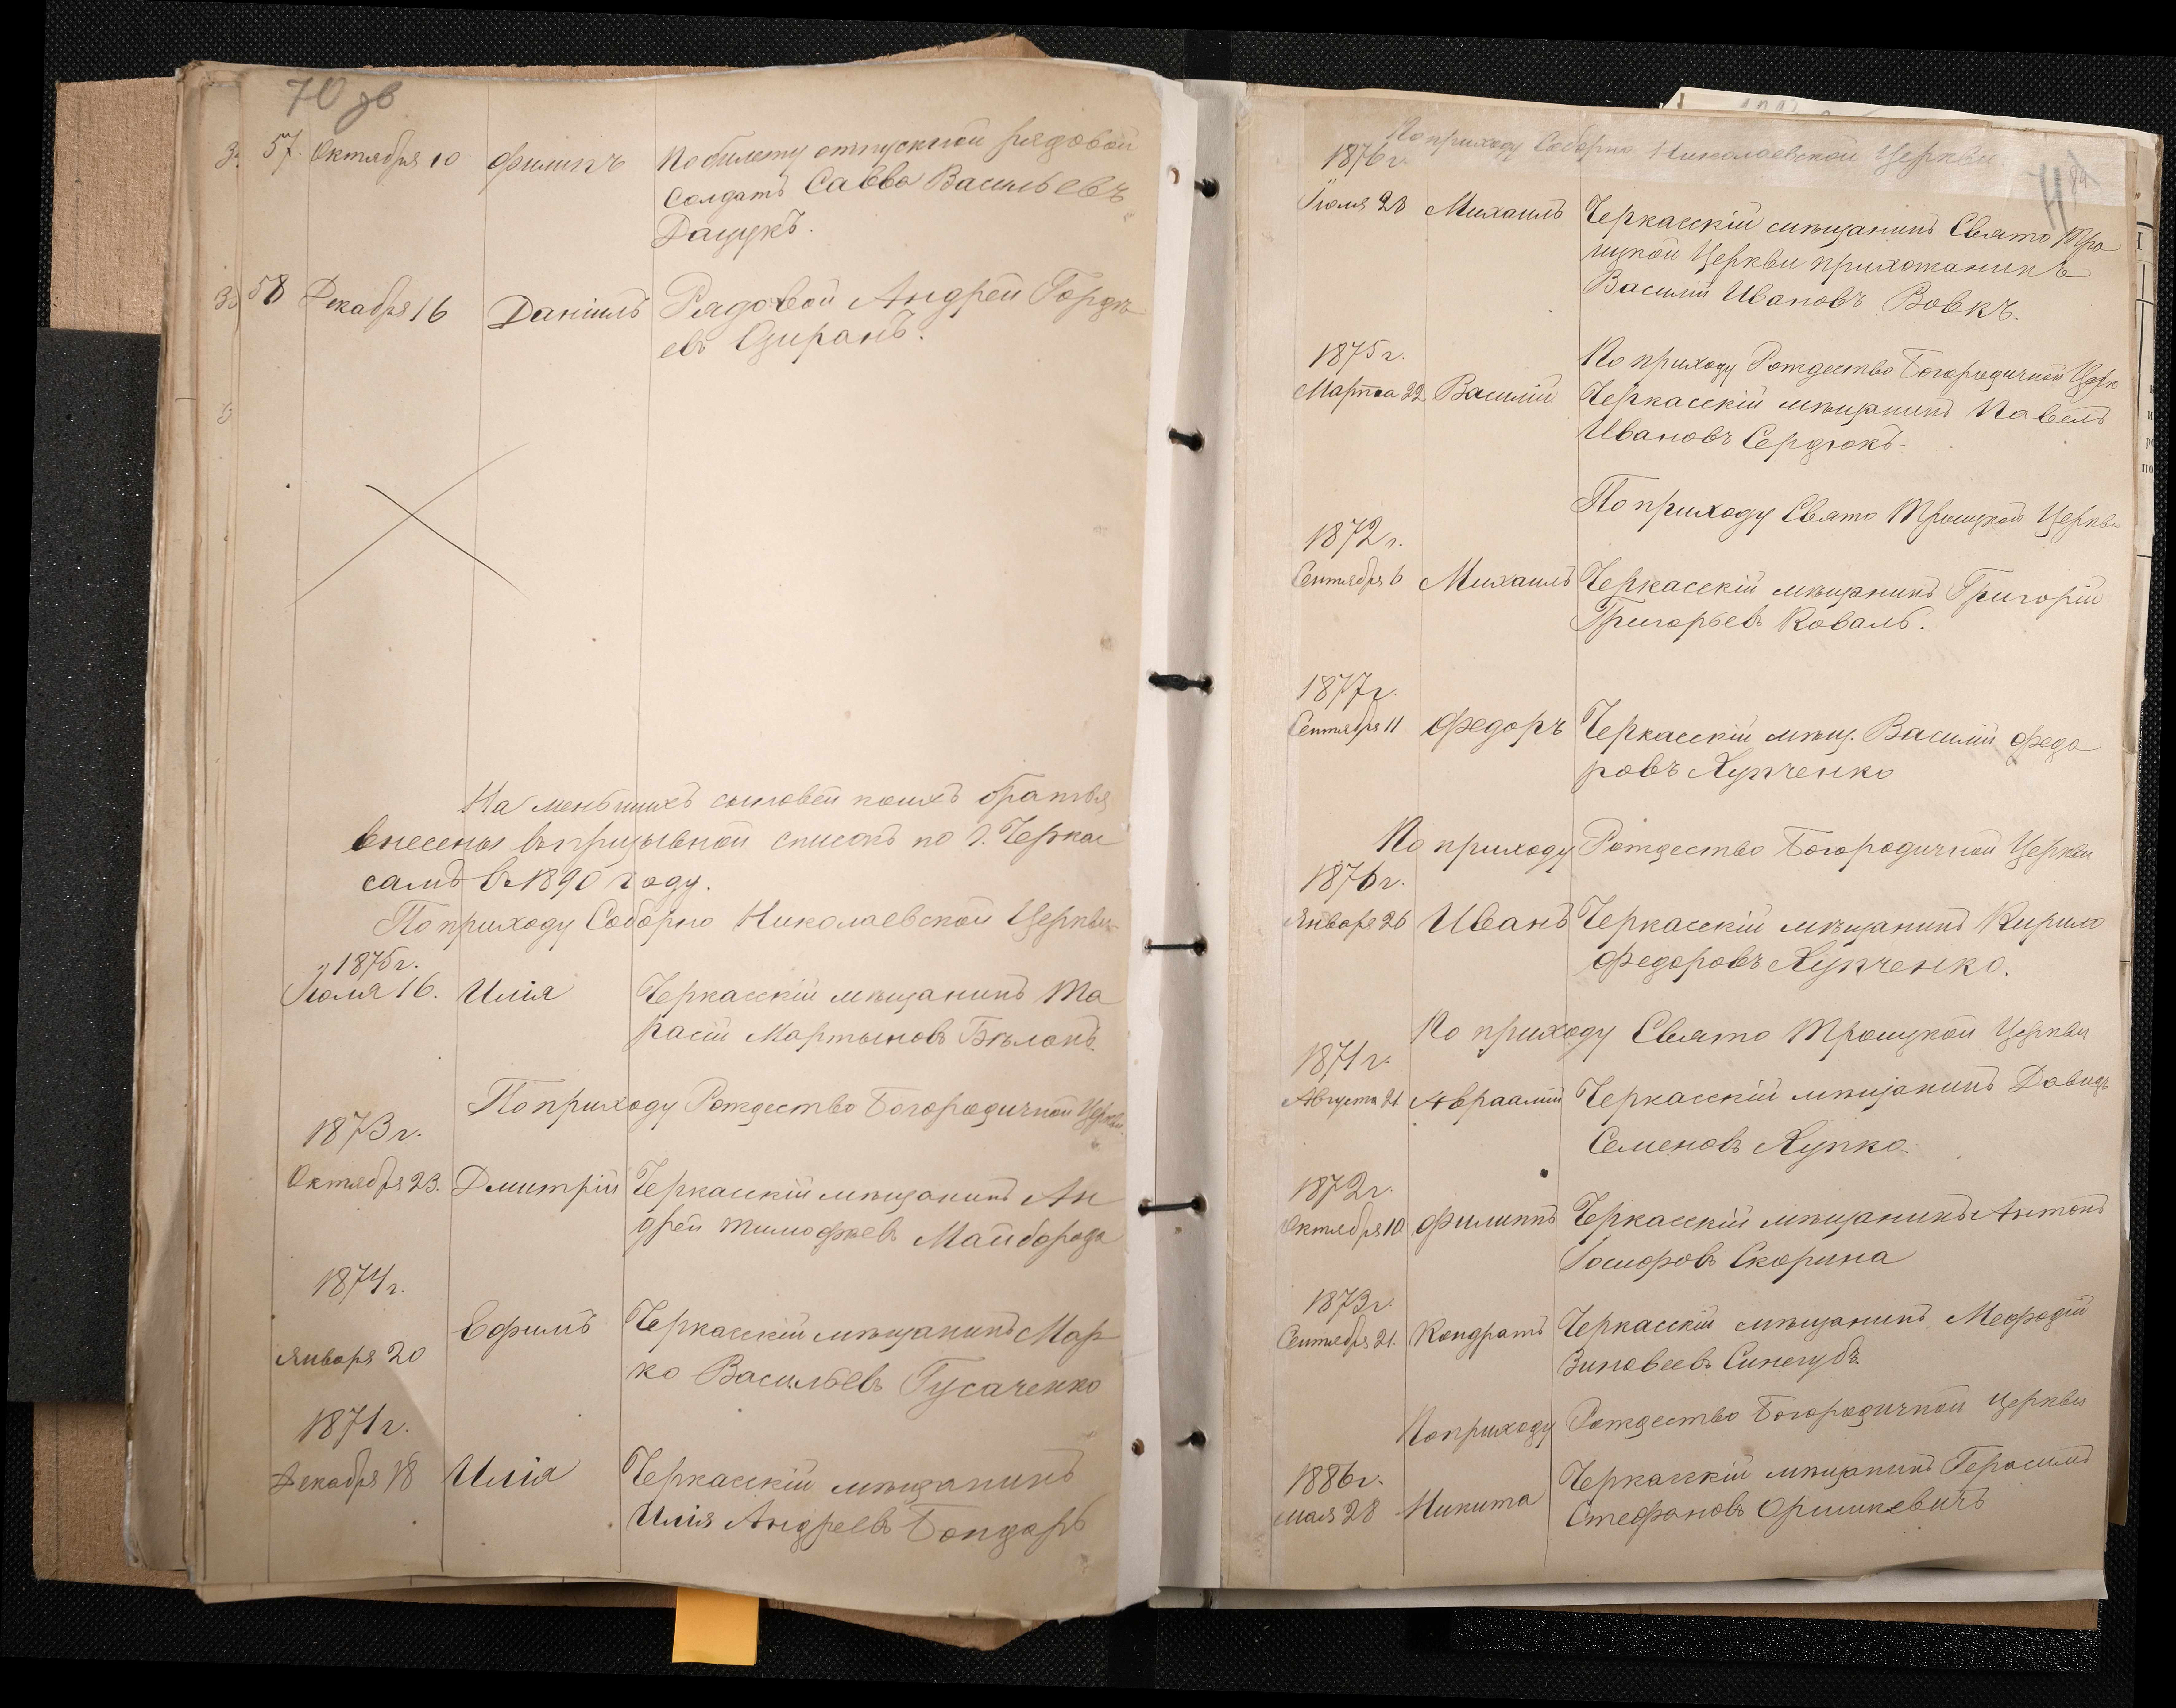 70 зв
57. Октября 10 Филипъ По билету отпускной рядовой
солдатъ Савва Васильевъ
Дацукъ.
58 Декабря 16 Даніилъ Рядовой Андрей Горде
евъ Оширанъ.
На меньшихъ сыновей коихъ братья
внесены въ призывной списокъ по г. Черкас
самъ въ 1890 году.
По приходу Соборно Николаевской Церкви
1875 г.
Іюля 16. Илія Черкасскій мѣщанинъ Та
расій Мартыновъ Бѣланъ.
По приходу Рождество Богородичной Церкви.
1873 г.
Октября 23. Дмитрій Черкасскій мѣщанинъ Ан
дрей Тимофѣевъ Майборода
1874 г.
Января 20 Ефимъ Черкасскій мѣщанинъ Мар
ко Васильевъ Гусаченко
1871 г.
Декабря 18 Илія Черкасскій мѣщанинъ
Илія Андреевъ Бондарь
По приходу Соборно Николаевской Церкви.
71
1876 г.
Іюля 28 Михаилъ Черкасскій мѣщанинъ Свято Тро
ицкой Церкви прихожанинъ
Василій Ивановъ Вовкъ.
1875 г. По приходу Рождество Богородичной Церк
Марта 22 Василій Черкасскій мѣщанинъ Павелъ
Ивановъ Сердюкъ.
По приходу Свято Троицкой Церкви
1872 г.
Сентября 6 Михаилъ Черкасскій мѣщанинъ Григорій
Григорьевъ Коваль.
1877 г.
Сентября 11 Федоръ Черкасскій мѣщ. Василій Федо
ровъ Лупченко
По приходу Рождество Богородичной Церкви
1876 г.
Января 26 Иванъ Черкасскій мѣщанинъ Кирило
Федоровъ Лупченко.
По приходу Свято Троицкой Церкви
1871 г.
Августа 21 Авраамій Черкасскій мѣщанинъ Давидъ
Семеновъ Лупко.
1872 г.
Октября 10 Филиппъ Черкасскій мѣщанинъ Антонъ
Іосифовъ Скорина
1873 г.
Сентября 21. Кондратъ Черкасскій мѣщанинъ Мефодій
Зиновеевъ Синегубъ.
По приходу Рождество Богородичной Церкви
1886 г. Черкасскій мѣщанинъ Герасимъ
Мая 28 Никита Стефановъ Оришкевичъ